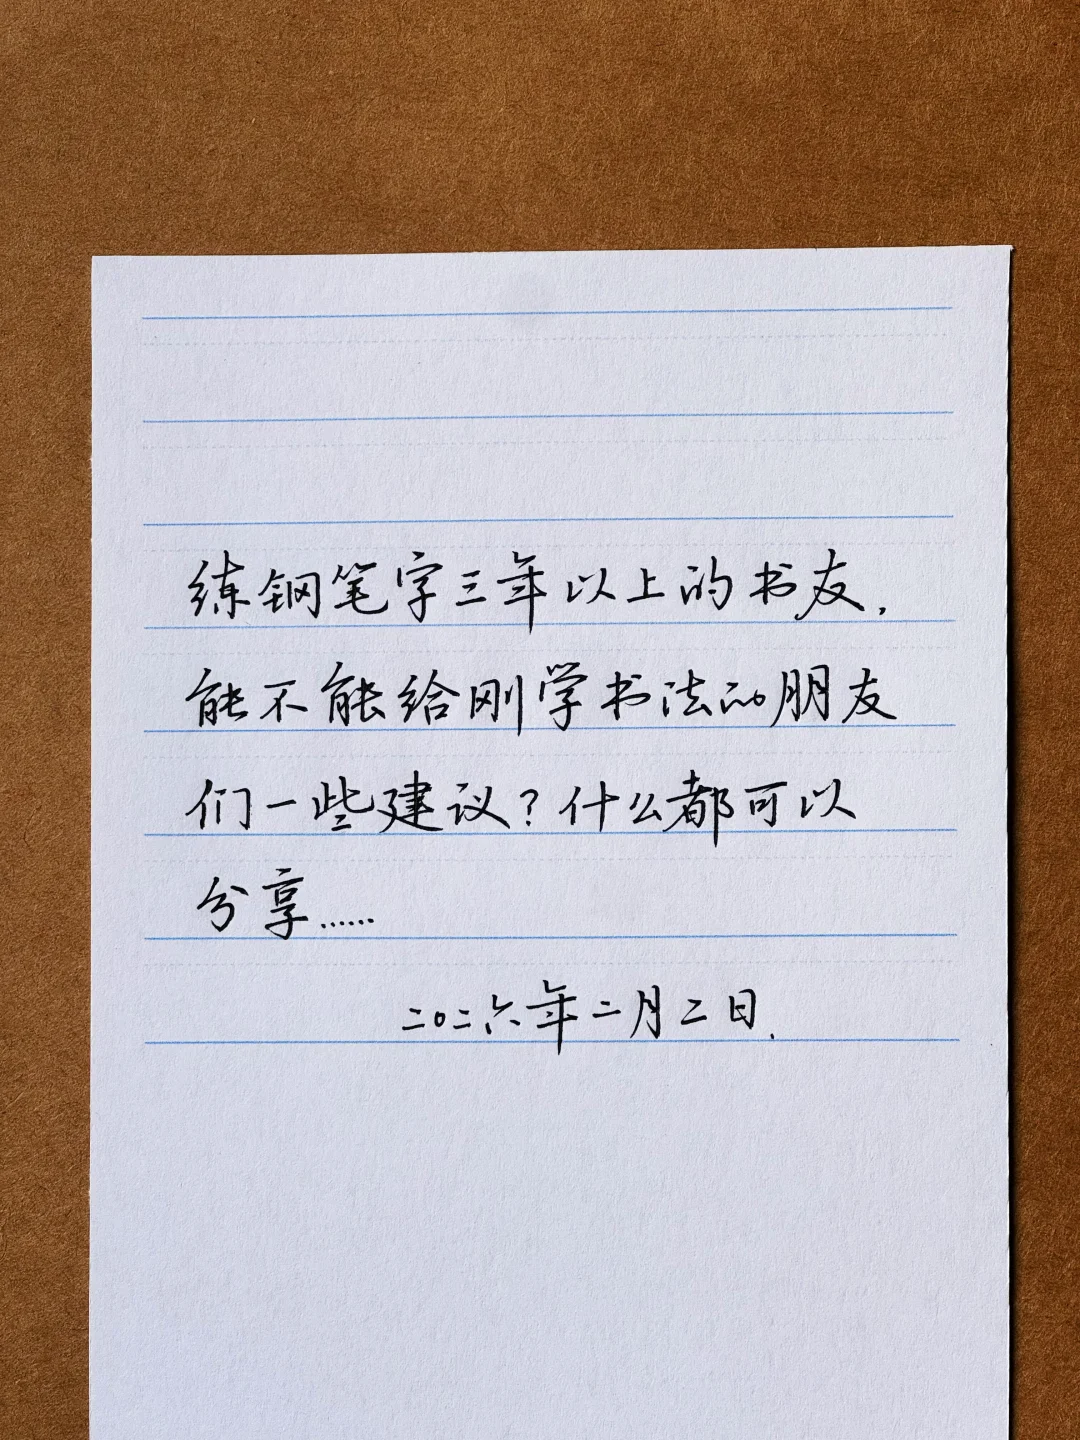 练钢笔字三年以上的书友，
能不能给刚学书法的朋友
们一些建议？什么都可以
分享……
二〇二六年二月二日.